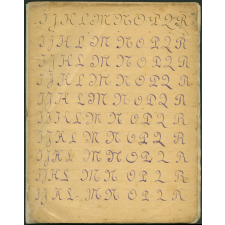 I J K L M N O P Q R
I J K L M N O P Q R
I J K L M N O P Q R
I J K L M N O P Q R
I J K L M N O P Q R
I J K L M N O P Q R
I J K L M N O P Q R
I J K L M N O P Q R
I J K L M N O P Q R
I J K L M N O P Q R